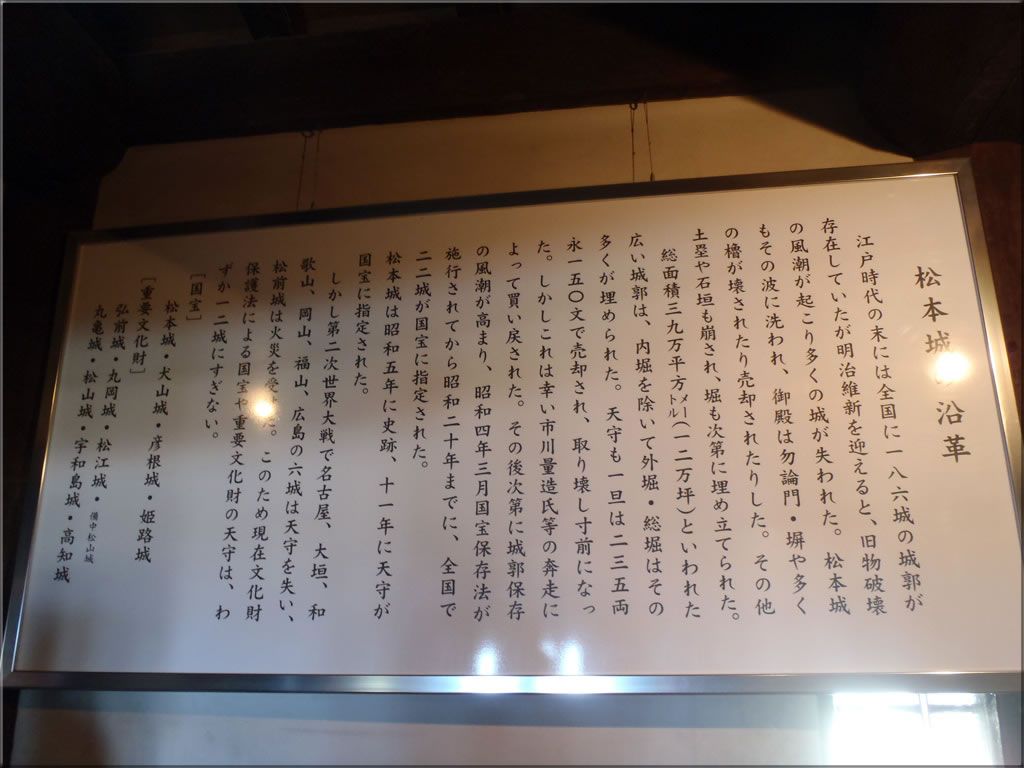 松本城 沿革
江戸時代の末には全国に一八六城の城郭が
存在していたが明治維新を迎えると、旧物破壊
の風潮が起こり多くの城が失われた。松本城
もその波に洗われ、御殿は勿論門・塀や多く
の櫓が壊されたり売却されたりした。その他
土塁や石垣も崩され、堀も次第に埋め立てられた。
総面積三九万平方メートル(一二万坪)といわれた
広い城郭は、内堀を除いて外堀・総堀はその
多くが埋められた。天守も一旦は二三五両
永一五〇文で売却され、取り壊し寸前になっ
た。しかしこれは幸い市川量造氏等の奔走に
よって買い戻された。その後次第に城郭保存
の風潮が高まり、昭和四年三月国宝保存法が
施行されてから昭和二十年までに、全国で
二二城が国宝に指定された。
松本城は昭和五年に史跡、十一年に天守が
国宝に指定された。
しかし第二次世界大戦で名古屋、大垣、和
歌山、岡山、福山、広島の六城は天守を失い、
松前城は火災を受 た。このため現在文化財
保護法による国宝や重要文化財の天守は、わ
ずか一二城にすぎない。
[国宝]
松本城・犬山城・彦根城・姫路城
[重要文化財]
弘前城・丸岡城・松江城・備中松山城
丸亀城・松山城・宇和島城・高知城